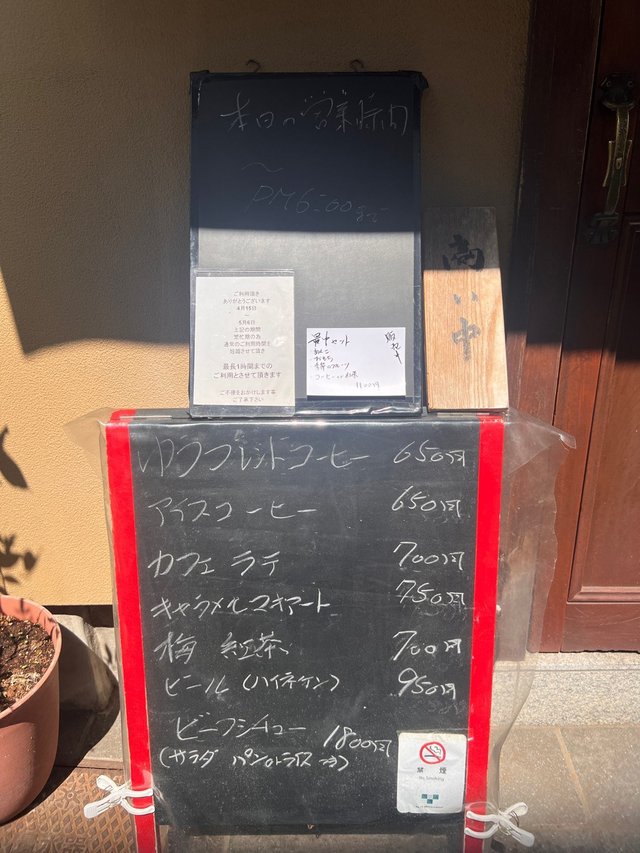 本日の営業時間
～
PM6:00まで
商い中
ご利用頂き
ありがとうございます
4月15日
～
5月6日
上記の期間
繁忙期の為
通常のご利用時間を
短縮させて頂き
最長1時間までの
ご利用とさせて頂きます
ご不便をおかけします事
ご了承下さい
最中セット
あんこ
おもち
季節のフルーツ
コーヒーor紅茶
1100円
ゆうブレンドコーヒー 650円
アイスコーヒー 650円
カフェラテ 700円
キャラメルマキアート 750円
梅紅茶 700円
ビール(ハイネケン) 950円
ビーフシチュー 1800円
(サラダ パンorライス付)
禁煙
No Smoking